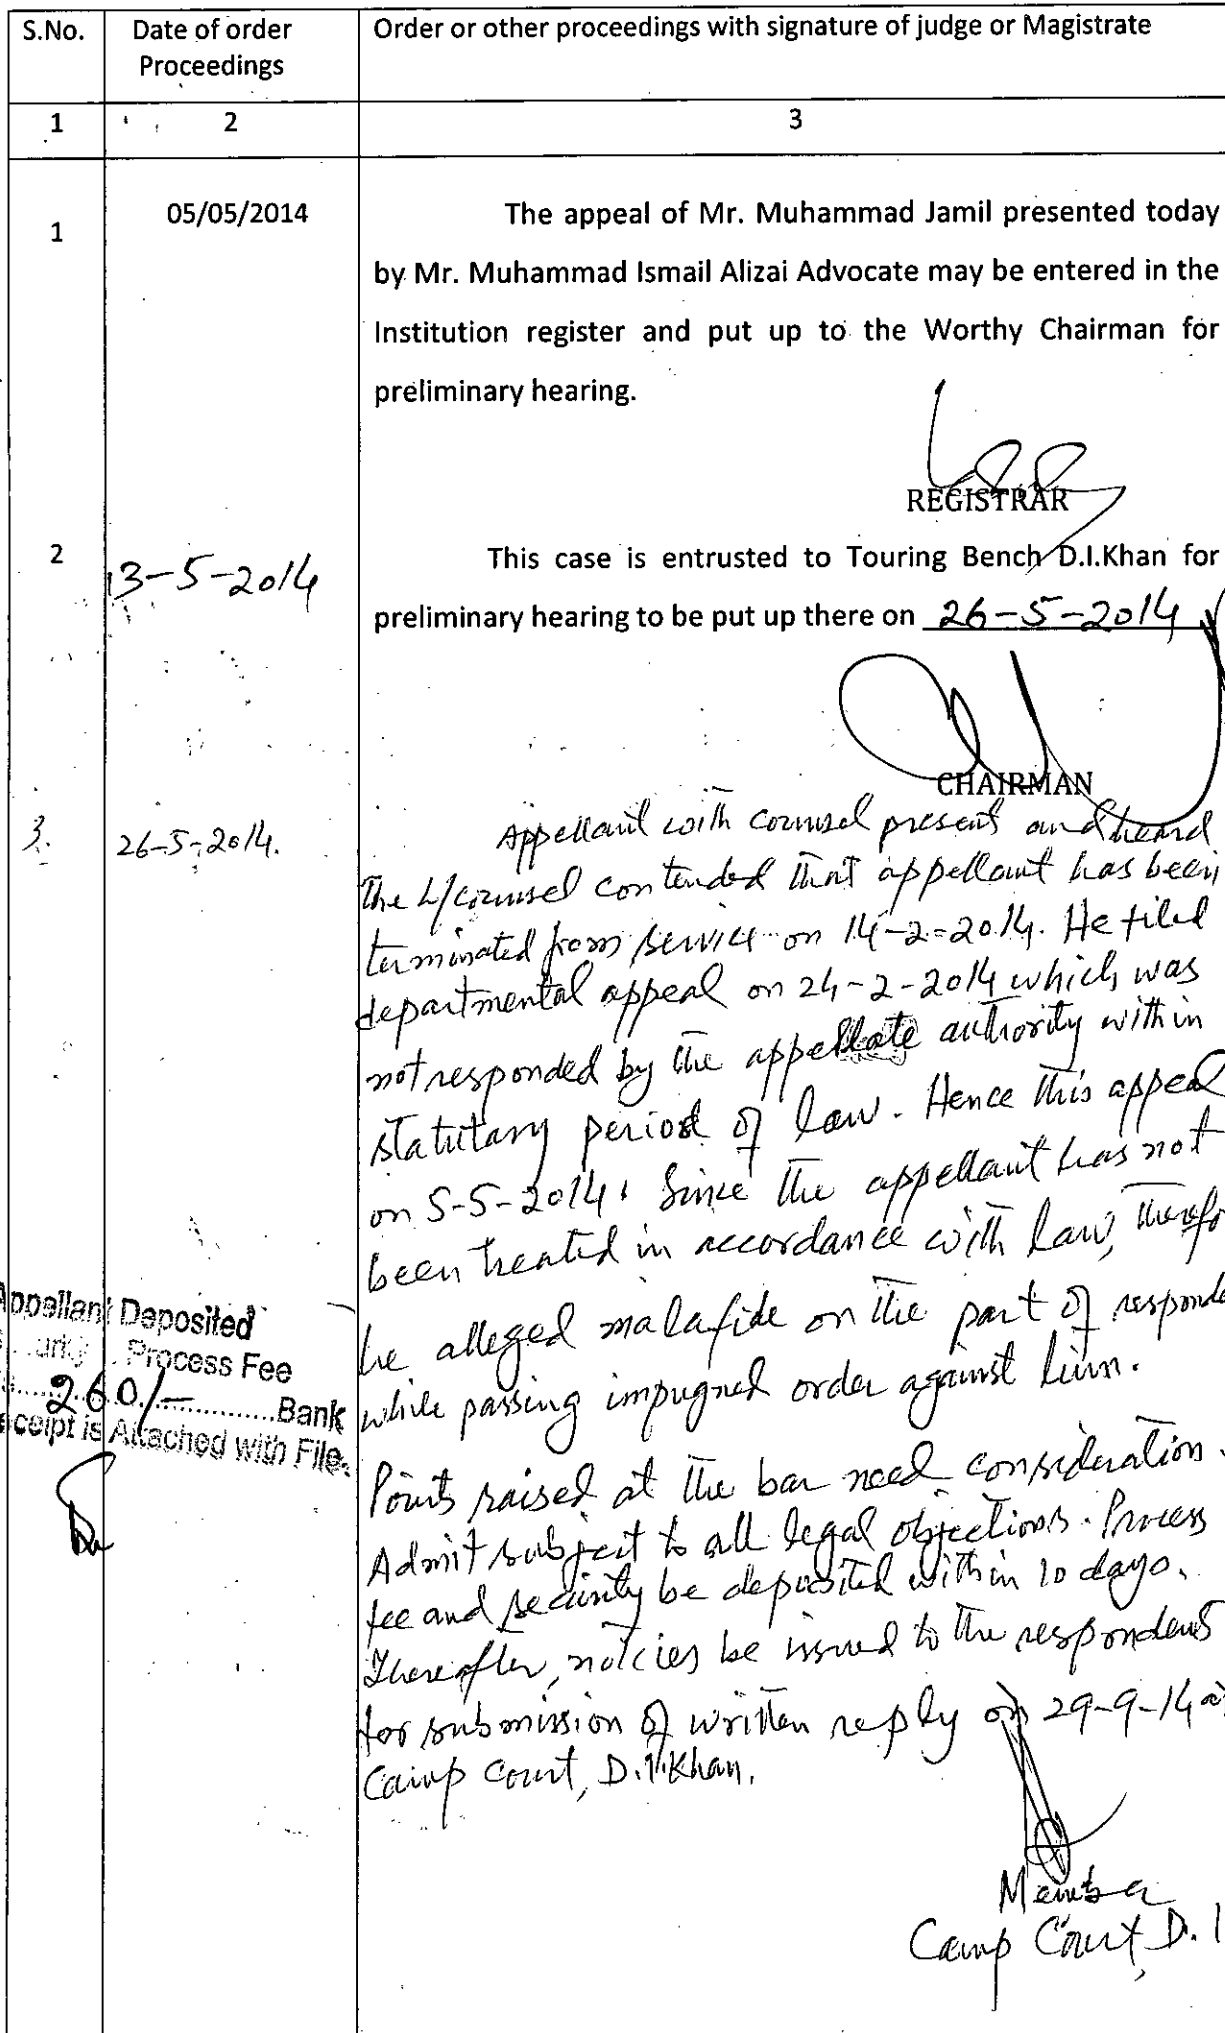 S.No.
Date of order
Proceedings
Order or other proceedings with signature of judge or Magistrate
1
2
3
1
05/05/2014
The appeal of Mr. Muhammad Jamil presented today
by Mr. Muhammad Ismail Alizai Advocate may be entered in the
Institution register and put up to the Worthy Chairman for
preliminary hearing.
REGISTRAR
2
13-5-2014
This case is entrusted to Touring Bench D.I.Khan for
preliminary hearing to be put up there on 26-5-2014
CHAIRMAN
3.
26-5-2014.
Appellant with counsel present and heard
The L/counsel contended that appellant has been
terminated from service on 14-2-2014. He filed
departmental appeal on 24-2-2014 which was
not responded by the appellate authority within
statutary period of law. Hence this appeal
on 5-5-2014. Since the appellant has not
been treated in accordance with law, therefo
he alleged malafide on the part of responde
while passing impugned order against him.
Points raised at the bar need consideration.
Admit subject to all legal objections. Process
fee and security be deposited within 10 days.
Thereafter, notcies be issued to the respondents
for submission of written reply on 29-9-14 at
Camp Court, D.I.Khan.
Appellant Deposited
Process Fee
260/- Bank
ceipt is Attached with File.
Member
Camp Court D. I